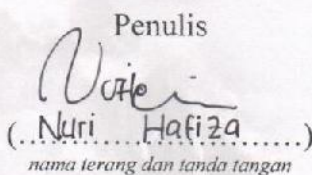 Penulis
(. Nuri Hafiza ........)
nama terang dan tanda tangan